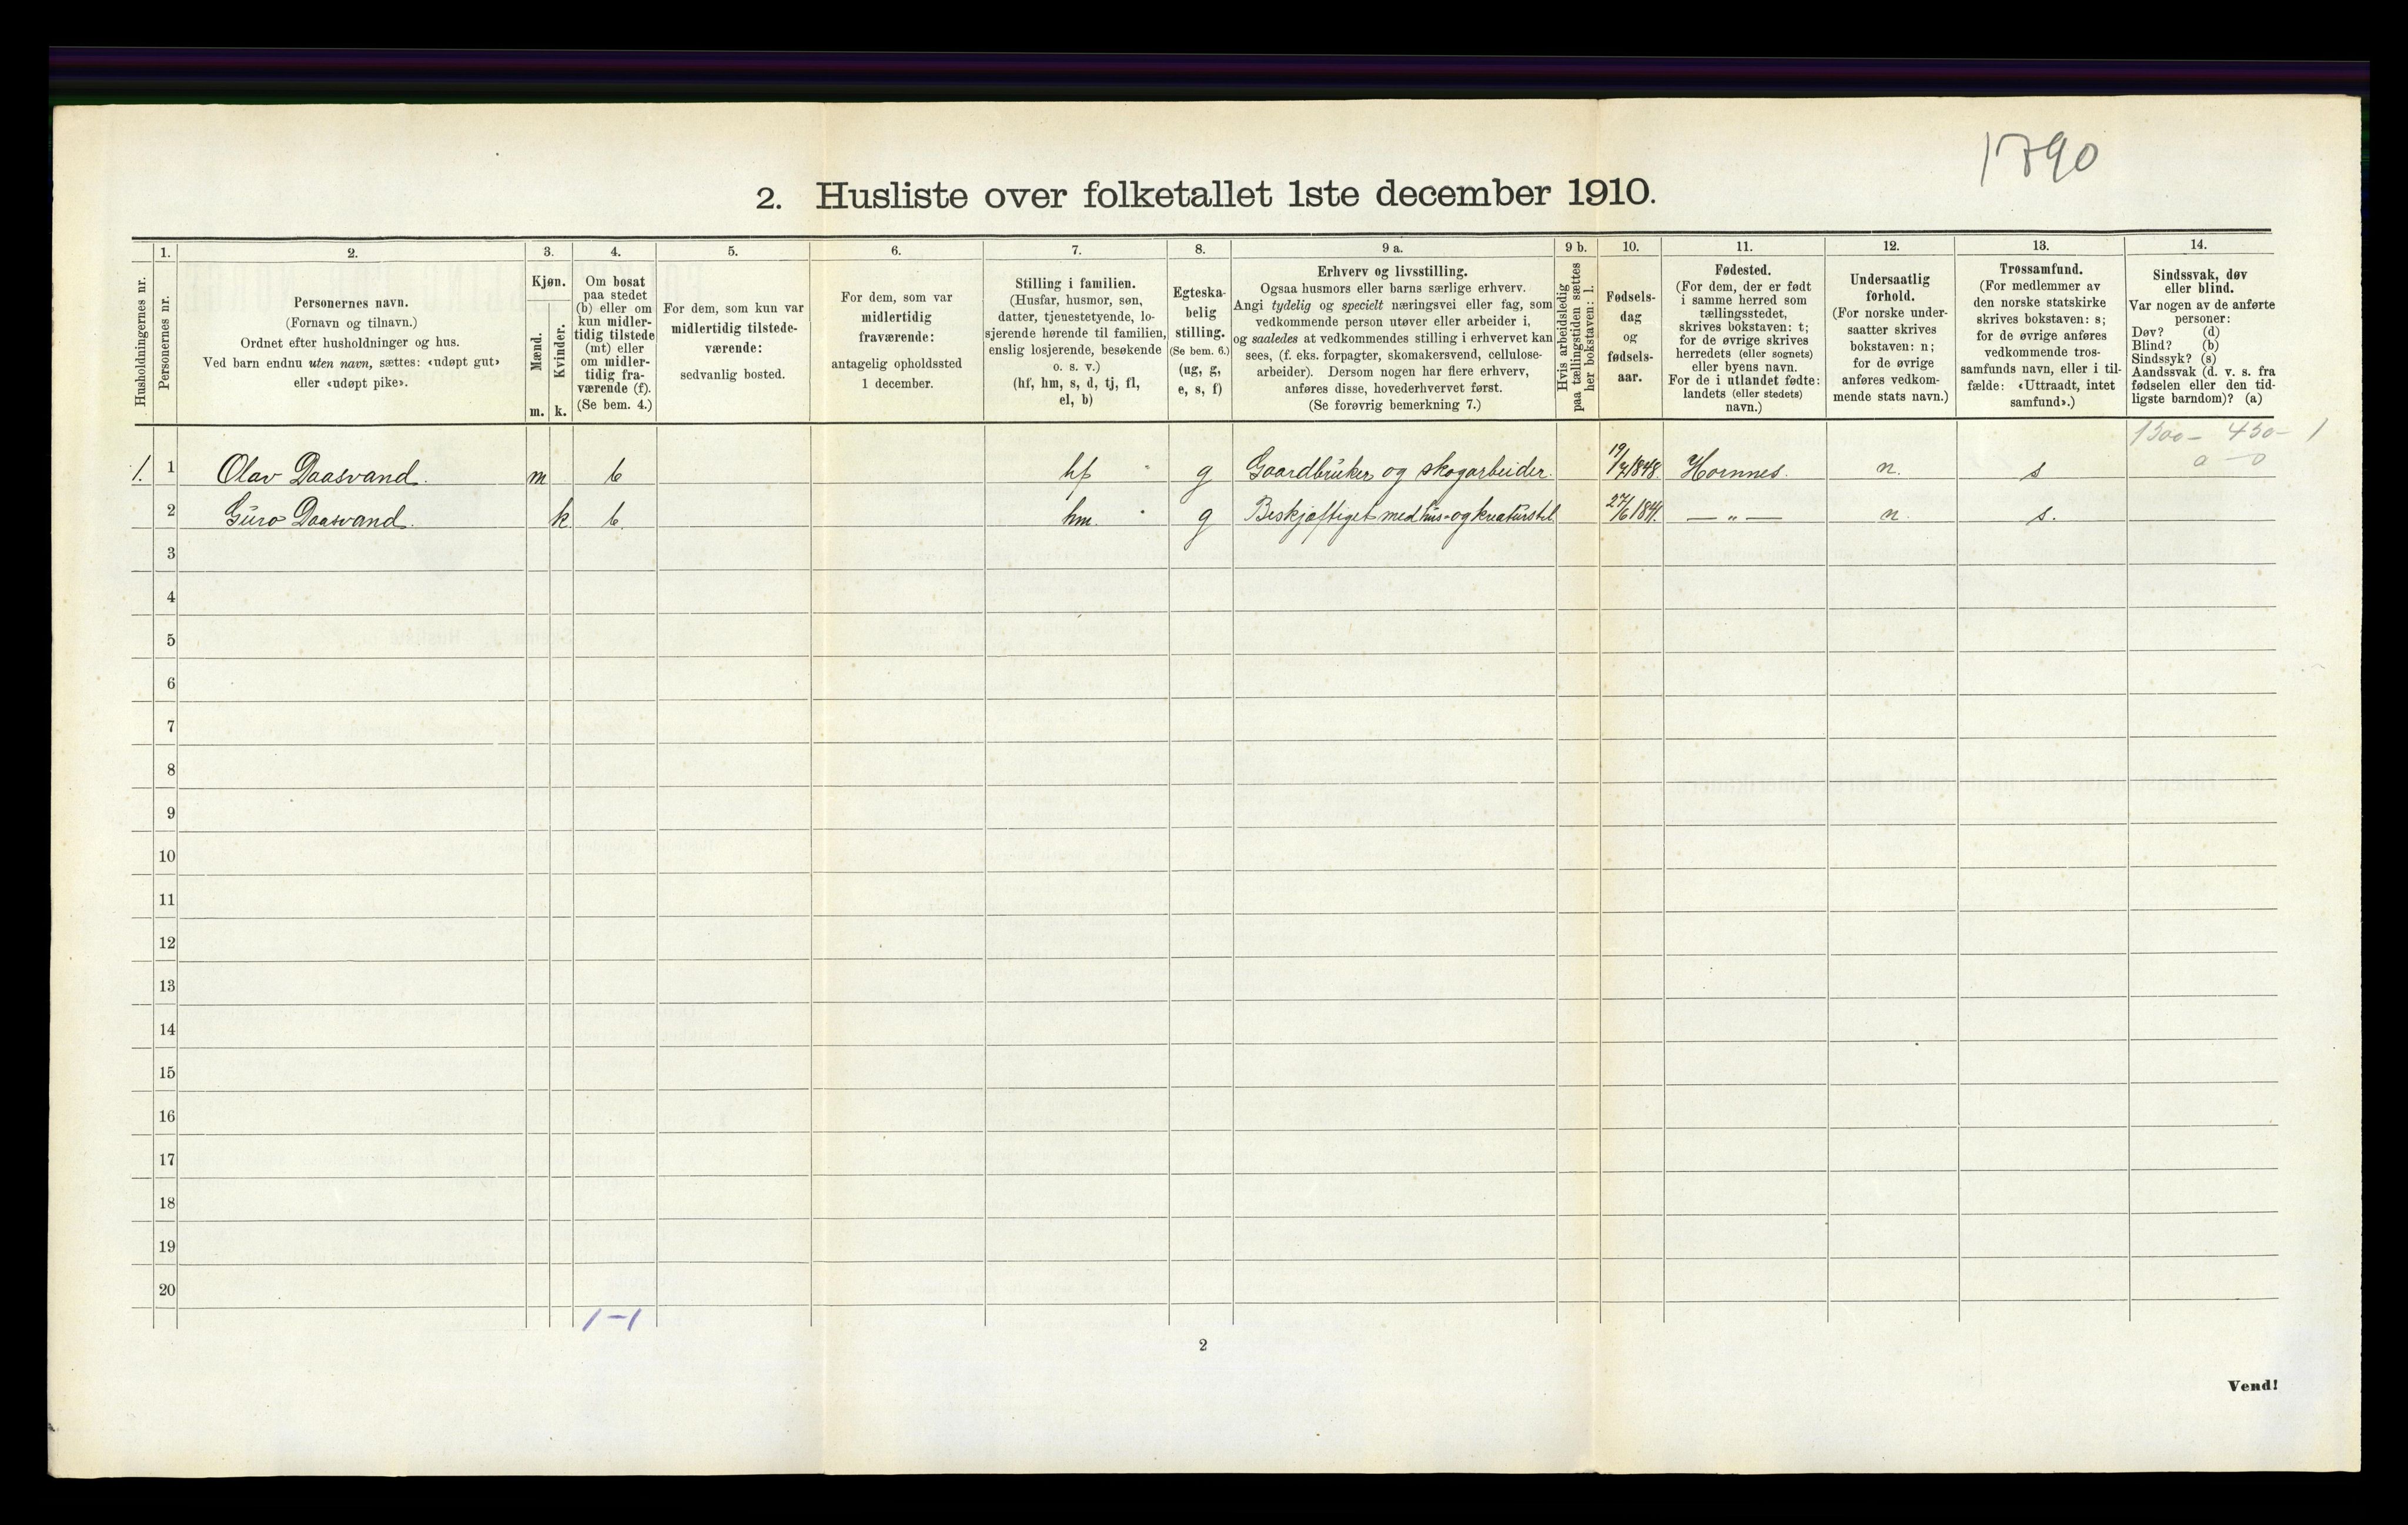 1890
2. Husliste over folketallet 1ste december 1910.
Husholdningernes nr.
1.
Personernes nr.
2.
Personernes navn.
(Fornavn og tilnavn.)
Ordnet efter husholdninger og hus.
Ved barn endnu uten navn, sættes: «udøpt gut»
eller «udøpt pike».
3.
Kjøn.
Mænd.
Kvinder.
m. k.
4.
Om bosat
paa stedet
(b) eller om
kun midler-
tidig tilstede
(mt) eller
om midler-
tidig fra-
værende (f).
(Se bem. 4.)
5.
For dem, som kun var
midlertidig tilstede-
værende:
sedvanlig bosted.
6.
For dem, som var
midlertidig
fraværende:
antagelig opholdssted
1 december.
7.
Stilling i familien.
(Husfar, husmor, søn,
datter, tjenestetyende, lo-
sjerende hørende til familien,
enslig losjerende, besøkende
o. s. v.)
(hf, hm, s, d, tj, fl,
el, b)
8.
Egteska-
belig
stilling.
(Se bem. 6.)
(ug, g,
e, s, f)
9 a.
Erhverv og livsstilling.
Ogsaa husmors eller barns særlige erhverv.
Angi tydelig og specielt næringsvei eller fag, som
vedkommende person utøver eller arbeider i,
og saaledes at vedkommendes stilling i erhvervet kan
sees, (f. eks. forpagter, skomakersvend, cellulose-
arbeider). Dersom nogen har flere erhverv,
anføres disse, hovederhvervet først.
(Se forøvrig bemerkning 7.)
9 b.
Hvis arbeidsledig
paa tællingstiden sættes
her bokstaven: l.
10.
Fødsels-
dag
og
fødsels-
aar.
11.
Fødested.
(For dem, der er født
i samme herred som
tællingsstedet,
skrives bokstaven: t;
for de øvrige skrives
herredets (eller sognets)
eller byens navn.
For de i utlandet fødte:
landets (eller stedets)
navn.)
12.
Undersaatlig
forhold.
(For norske under-
saatter skrives
bokstaven: n;
for de øvrige
anføres vedkom-
mende stats navn.)
13.
Trossamfund.
(For medlemmer av
den norske statskirke
skrives bokstaven: s;
for de øvrige anføres
vedkommende tros-
samfunds navn, eller i til-
fælde: «Uttraadt, intet
samfund».)
14.
Sindssvak, døv
eller blind.
Var nogen av de anførte
personer:
Døv? (d)
Blind? (b)
Sindssyk? (s)
Aandssvak (d. v. s. fra
fødselen eller den tid-
ligste barndom)? (a)
1300 - 450 - 1
0 - 0
1. 1 Olav Daasvand. m b hf g Gaardbruker og skogarbeider. 1848. Hornnes. n. s
2 Guro Daasvand. k b. hm. g Beskjæftiget med hus- og kreaturstel. 27/6 1841. — „ — n s.
3
4
5
6
7
8
9
10
11
12
13
14
15
16
17
18
19
20
1 - 1
2
Vend!